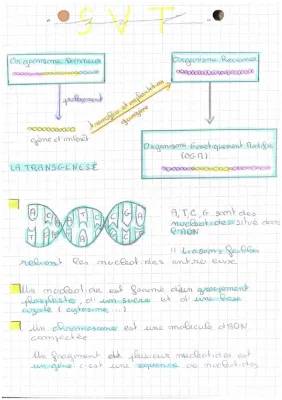 SVT
Organisme Donneur
Organisme Receveur
prélèvement
transfert et implantation
gène d'intérêt
Organisme Génétiquement Modifié
(OGM)
LA TRANSGENESE
A, T, C, G sont des
nucléotides situé dans
l'ADN
A C T C G A
T A
liaisons faibles
relient les nucléotides entre eux
Un nucléotide est formé d'un groupement
phosphate, d'un sucre et d'une base
azoté (cytosine ...)
Un chromosome est une molécule d'ADN
compactée
Un fragment de plusieur nucléotides est
un gène c'est une séquence de nucléotides